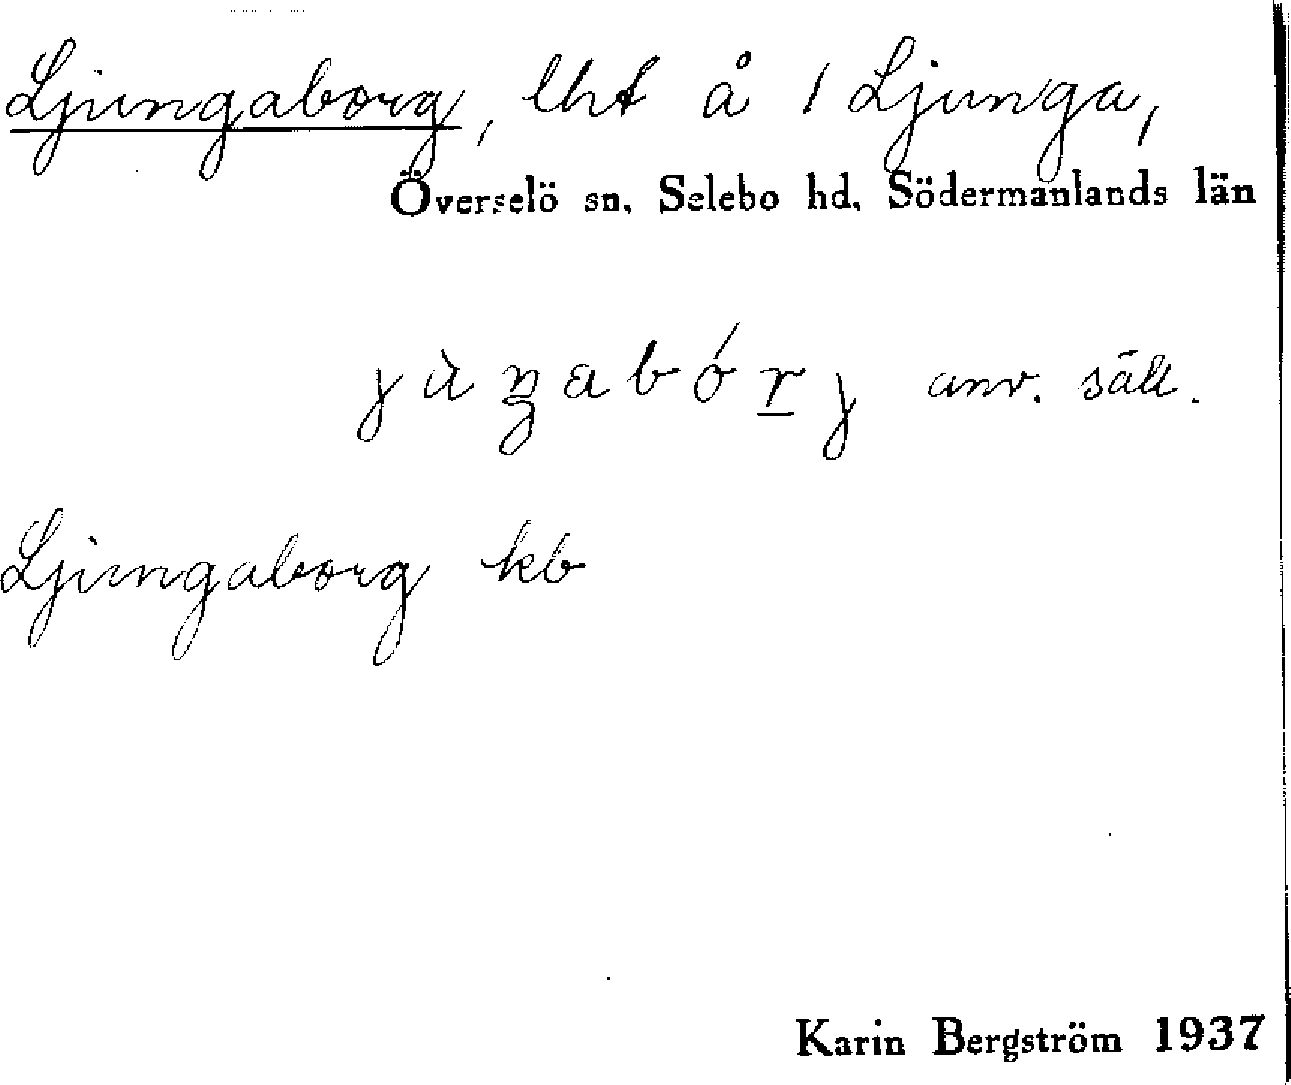 Ljungaborg, lht å 1 Ljunga,
Överselö sn, Selebo hd, Södermanlands län
anv. säll.
Ljungaborg kb
Karin Bergström 1937